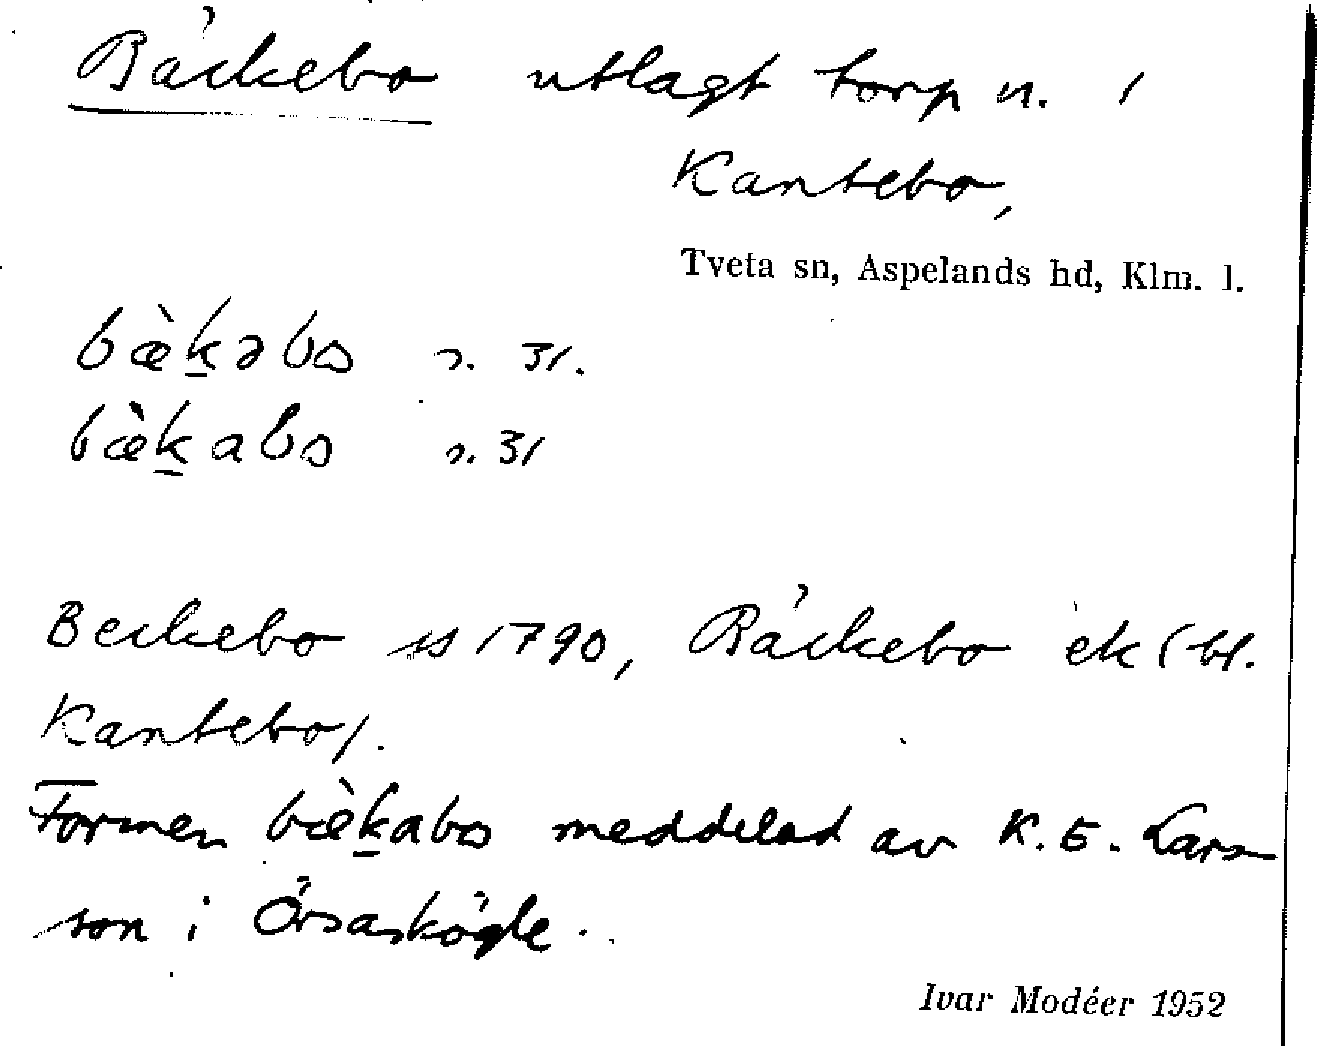 Bäckebo utlagt torp u. 1
Kantebo,
Tveta sn, Aspelands hd, Klm. l.
bæ̀k̲əbo s. 31.
bæ̀k̲abo s. 31
Beckebo ss 1790, Bäckebo ek (bl.
Kantebo).
Formen bæ̀k̲abo meddelad av K. E. Lars-
son i Örsaskögle.
Ivar Modéer 1952